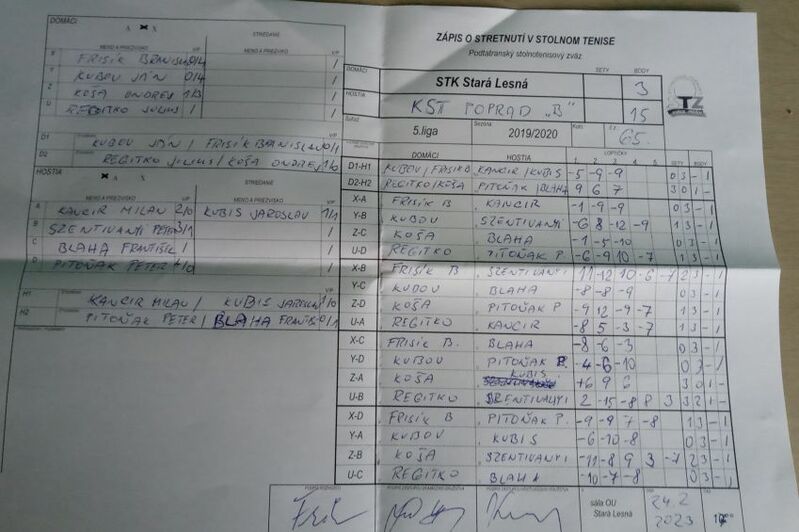 DOMÁCI
A X X
STRIEDANIE
MENO A PRIEZVISKO V/P MENO A PRIEZVISKO V/P
X FRISÍK BRANISLAV 0/4 /
Y KUBOV JÁN 0/4 /
Z KOŠA ONDREJ 1/3 /
U REGITKO JULIUS / /
D1 KUBOV JÁN / FRISÍK BRANISLAV 0/1
D2 REGITKO JULIUS / KOŠA ONDREJ 1/0
HOSTIA
X A X
STRIEDANIE
MENO A PRIEZVISKO V/P MENO A PRIEZVISKO V/P
A KANCIR MILAN 2/0 KUBIS JAROSLAV 1/1
B SZENTIVANYI PETER 3/1 /
C BLAHA FRANTIŠEK / /
D PITOŇAK PETER 4/0 /
H1 KANCIR MILAN / KUBIS JAROSLAV 1/0
H2 PITOŇAK PETER / BLAHA FRANTIŠEK 0/1
ZÁPIS O STRETNUTÍ V STOLNOM TENISE
Podtatranský stolnotenisový zväz
SETY BODY
DOMÁCI STK Stará Lesná 3
HOSTIA KST POPRAD "B" 15
STZ
5.liga Sezóna 2019/2020 Kolo Č.z. 65.
DOMÁCI HOSTIA LOPTIČKY SETY BODY
1 2 3 4 5
D1-H1 KUBOV/FRISIK KANCIR/KUBIS -5 -9 -9 0 3 - 1
D2-H2 REGITKO/KOŠA PITOŇAK/BLAHA 9 6 7 3 0 1 -
X-A FRISÍK B KANCIR -1 -9 -9 0 3 - 1
Y-B KUBOV SZENTIVANYI -6 8 -12 -9 1 3 - 1
Z-C KOŠA BLAHA -1 -5 -10 0 3 - 1
U-D REGITKO PITOŇAK P. -6 -9 10 -7 1 3 - 1
X-B FRISÍK B SZENTIVANYI 11 -12 10 -6 -7 2 3 - 1
Y-C KUBOV BLAHA -8 -8 -9 0 3 - 1
Z-D KOŠA PITOŇAK P -9 12 -9 -7 1 3 - 1
U-A REGITKO KANCIR -8 5 -3 -7 1 3 - 1
X-C FRISÍK B. BLAHA -8 -6 -3 0 3 - 1
Y-D KUBOV PITOŇAK P. -4 -6 -10 0 3 - 1
Z-A KOŠA KUBIS +6 9 6 3 0 1 -
U-B REGITKO SZENTIVANYI 2 -15 -8 8 3 3 2 1 -
X-D FRISÍK B PITOŇAK P. -9 -9 7 -8 1 3 - 1
Y-A KUBOV KUBIS -6 -10 -8 0 3 - 1
Z-B KOŠA SZENTIVANYI -11 -8 9 3 -7 2 3 - 1
U-C REGITKO BLAHA -10 -7 -8 0 3 - 1
sála OU
Stará Lesná
24.2
2023